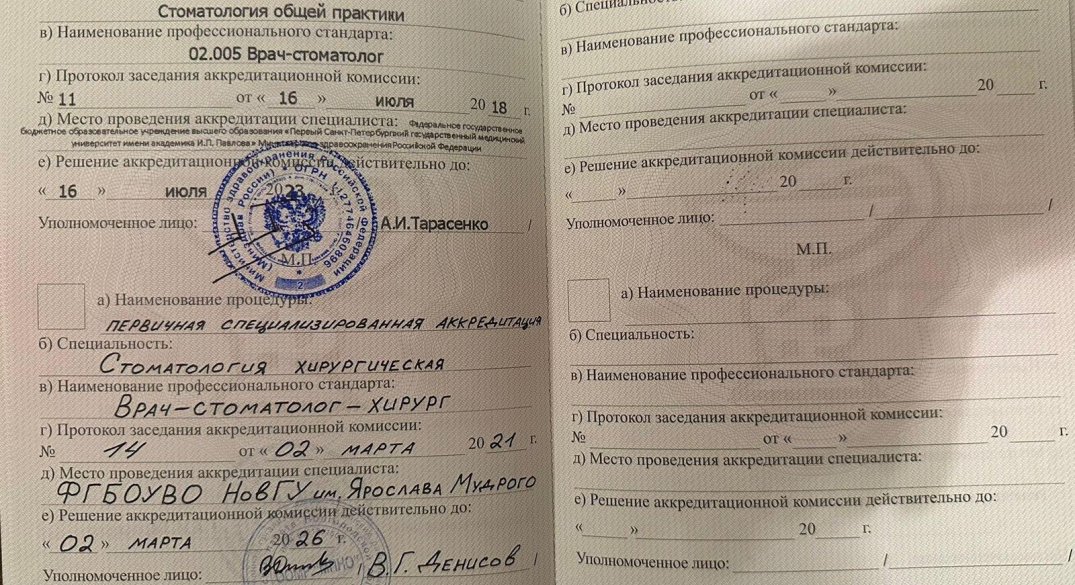 Стоматология общей практики
в) Наименование профессионального стандарта:
02.005 Врач-стоматолог
г) Протокол заседания аккредитационной комиссии:
№ 11 от « 16 » июля 20 18 г.
д) Место проведения аккредитации специалиста: Федеральное государственное
бюджетное образовательное учреждение высшего образования «Первый Санкт-Петербургский государственный медицинский
университет имени академика И.П. Павлова» здравоохранения Российской Федерации
е) Решение аккредитационной комиссии действительно до:
« 16 » июля 2023 г.
Уполномоченное лицо: / А.И.Тарасенко /
М.П.
Министерство здравоохранения Российской Федерации
(Минздрав России) * ОГРН 1127746460896
2
а) Наименование процедуры:
ПЕРВИЧНАЯ СПЕЦИАЛИЗИРОВАННАЯ АККРЕДИТАЦИЯ
б) Специальность:
СТОМАТОЛОГИЯ ХИРУРГИЧЕСКАЯ
в) Наименование профессионального стандарта:
ВРАЧ-СТОМАТОЛОГ-ХИРУРГ
г) Протокол заседания аккредитационной комиссии:
№ 14 от « 02 » МАРТА 20 21 г.
д) Место проведения аккредитации специалиста:
ФГБОУВО НовГУ им. ЯРОСЛАВА МУДРОГО
е) Решение аккредитационной комиссии действительно до:
« 02 » МАРТА 20 26 г.
Уполномоченное лицо: / В.Г. ДЕНИСОВ /
б) Специальность:
в) Наименование профессионального стандарта:
г) Протокол заседания аккредитационной комиссии:
№ от « » 20 г.
д) Место проведения аккредитации специалиста:
е) Решение аккредитационной комиссии действительно до:
« » 20 г.
Уполномоченное лицо: / /
М.П.
а) Наименование процедуры:
б) Специальность:
в) Наименование профессионального стандарта:
г) Протокол заседания аккредитационной комиссии:
№ от « » 20 г.
д) Место проведения аккредитации специалиста:
е) Решение аккредитационной комиссии действительно до:
« » 20 г.
Уполномоченное лицо: / /